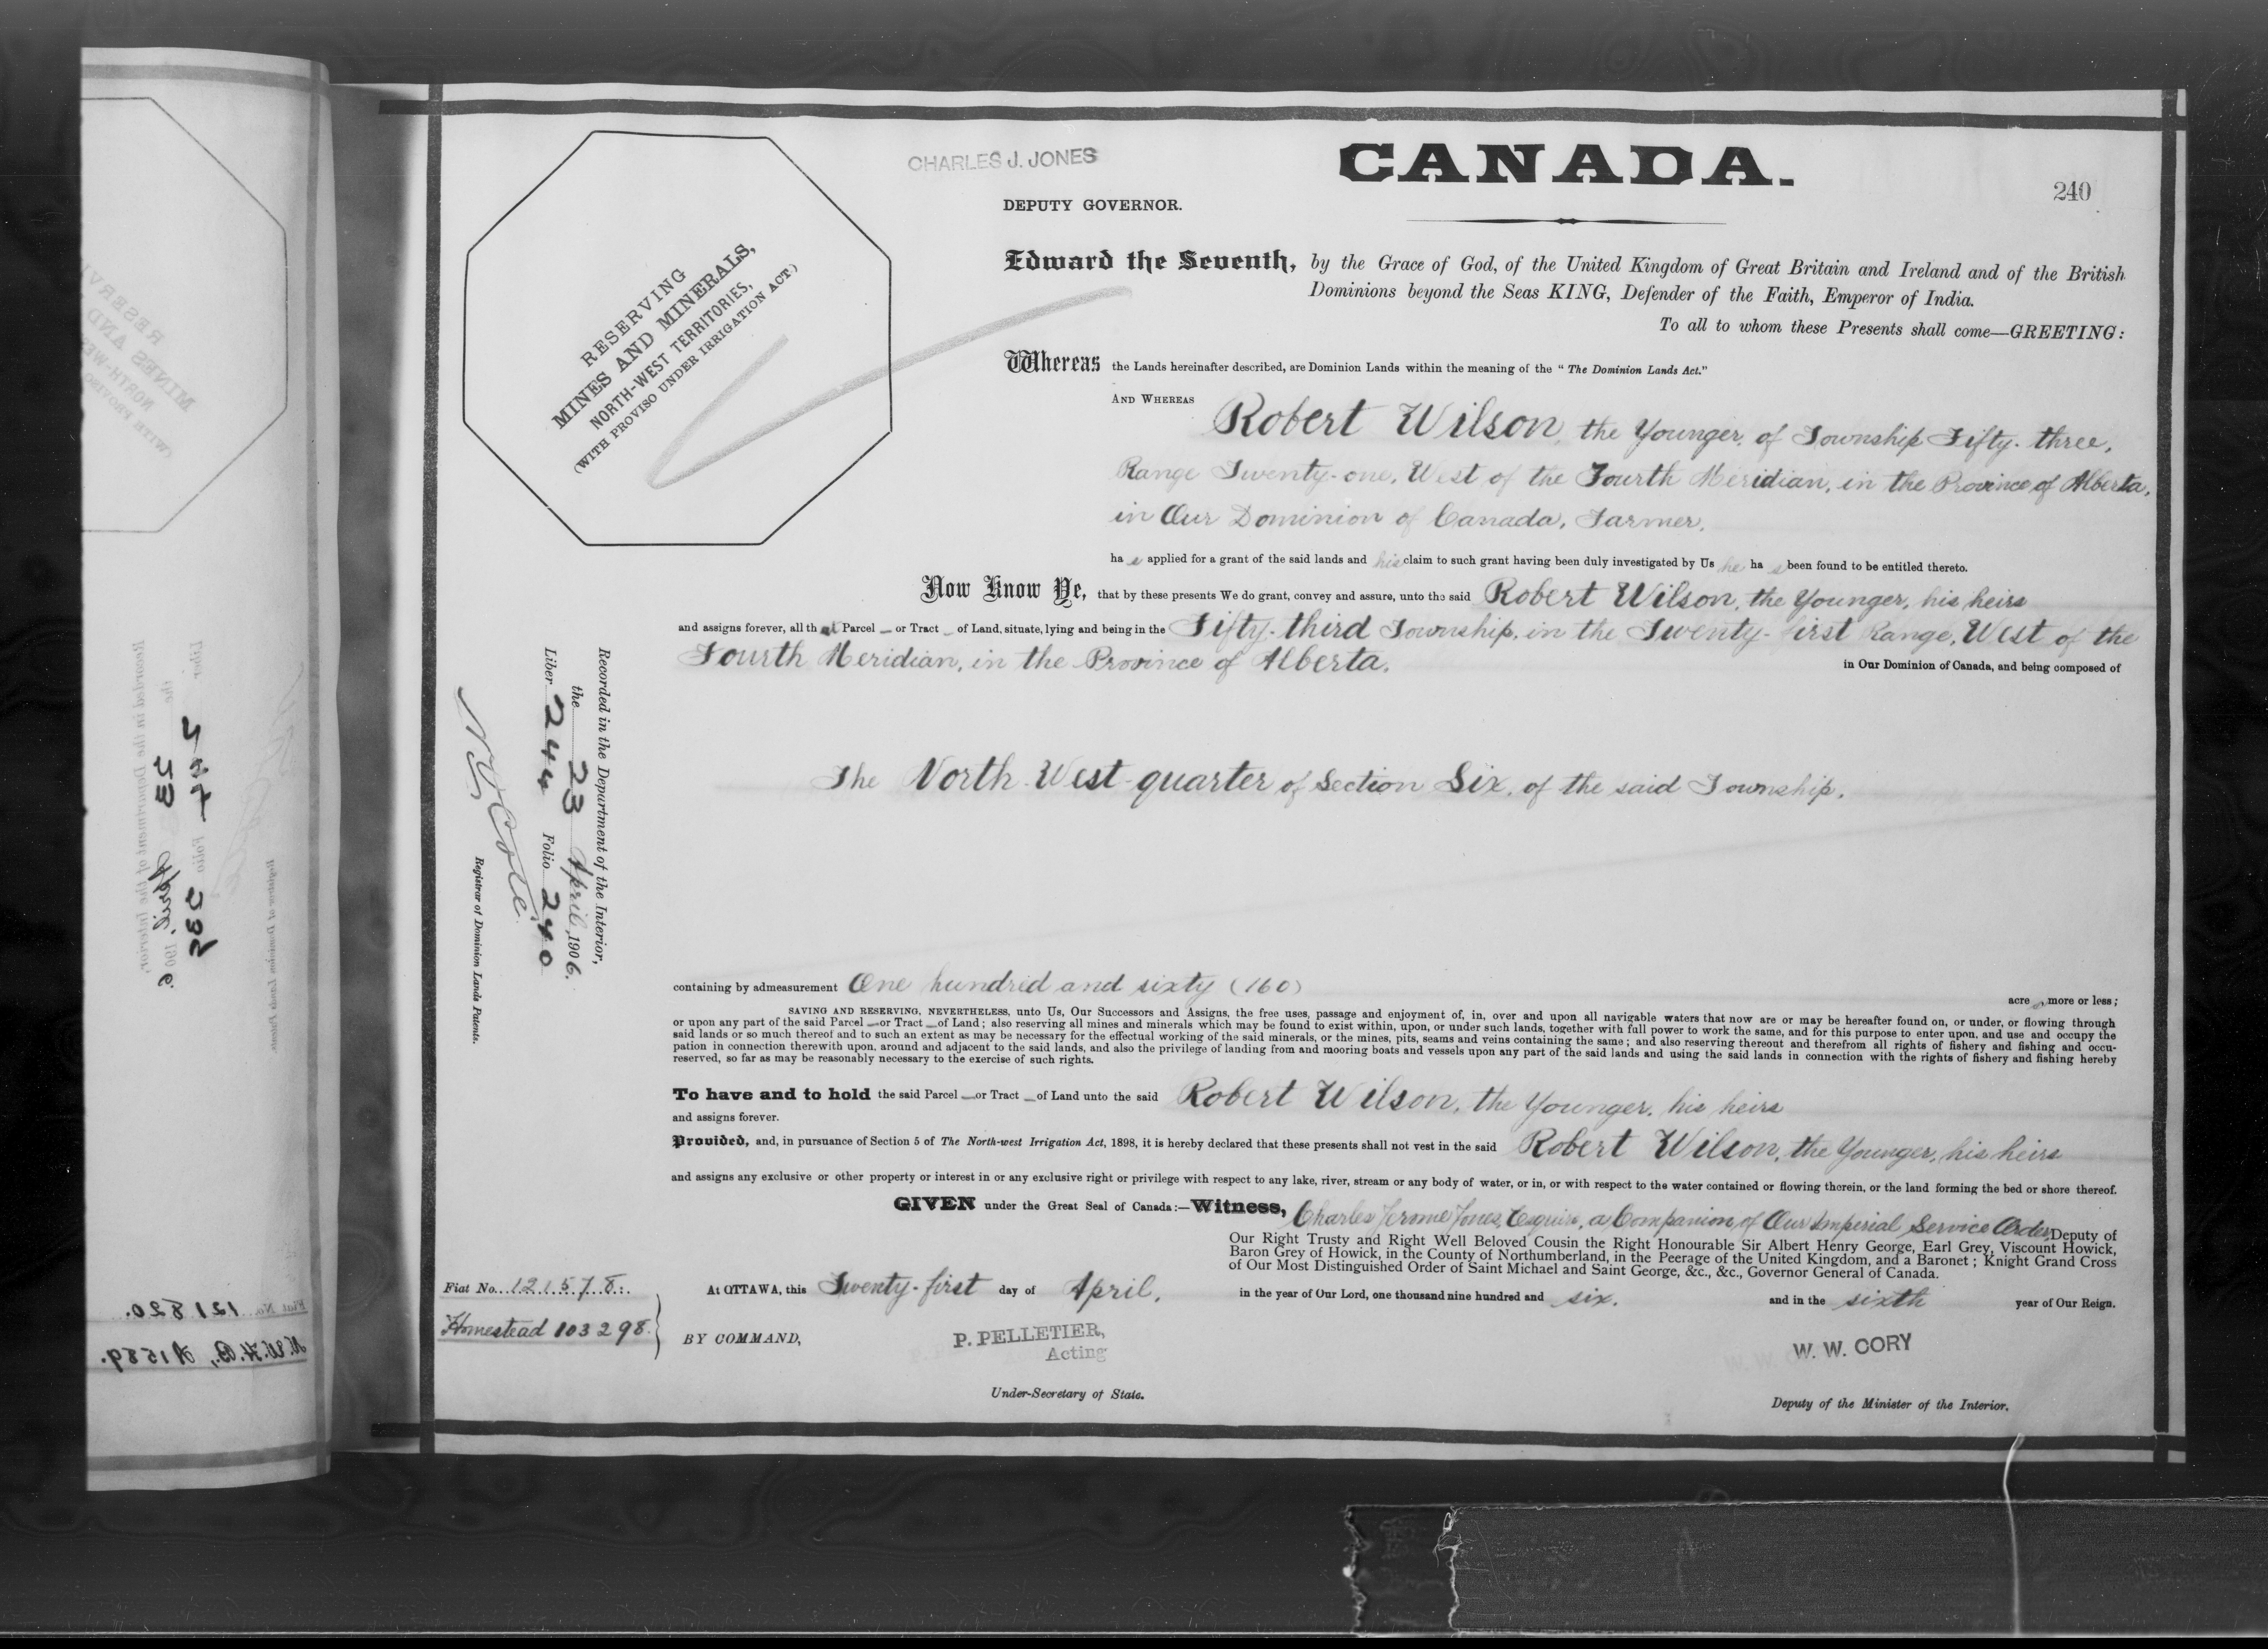 CHARLES J. JONES
CANADA.
240
DEPUTY GOVERNOR.
RESERVING
MINES AND MINERALS,
NORTH-WEST TERRITORIES,
(WITH PROVISO UNDER IRRIGATION ACT.)
Edward the Seventh, by the Grace of God, of the United Kingdom of Great Britain and Ireland and of the British
Dominions beyond the Seas KING, Defender of the Faith, Emperor of India.
To all to whom these Presents shall come—GREETING:
Whereas the Lands hereinafter described, are Dominion Lands within the meaning of the "The Dominion Lands Act."
AND WHEREAS Robert Wilson, the Younger, of Township Fifty-three,
Range Twenty-one, West of the Fourth Meridian, in the Province of Alberta,
in Our Dominion of Canada, Farmer,
ha s applied for a grant of the said lands and his claim to such grant having been duly investigated by Us he ha s been found to be entitled thereto.
Now Know Ye, that by these presents We do grant, convey and assure, unto the said Robert Wilson, the Younger, his heirs
and assigns forever, all that Parcel — or Tract — of Land, situate, lying and being in the Fifty-third Township, in the Twenty-first Range, West of the
Fourth Meridian, in the Province of Alberta, in Our Dominion of Canada, and being composed of
The North West quarter of Section Six, of the said Township,
Recorded in the Department of the Interior,
the 23 April, 1906.
Liber 244 Folio 240
N O Coté
Registrar of Dominion Lands Patents.
containing by admeasurement One hundred and sixty (160) acre s more or less;
SAVING AND RESERVING, NEVERTHELESS, unto Us, Our Successors and Assigns, the free uses, passage and enjoyment of, in, over and upon all navigable waters that now are or may be hereafter found on, or under, or flowing through
or upon any part of the said Parcel — or Tract — of Land; also reserving all mines and minerals which may be found to exist within, upon, or under such lands, together with full power to work the same, and for this purpose to enter upon, and use and occupy the
said lands or so much thereof and to such an extent as may be necessary for the effectual working of the said minerals, or the mines, pits, seams and veins containing the same; and also reserving thereout and therefrom all rights of fishery and fishing and occu-
pation in connection therewith upon, around and adjacent to the said lands, and also the privilege of landing from and mooring boats and vessels upon any part of the said lands and using the said lands in connection with the rights of fishery and fishing hereby
reserved, so far as may be reasonably necessary to the exercise of such rights.
To have and to hold the said Parcel — or Tract — of Land unto the said Robert Wilson, the Younger, his heirs
and assigns forever.
Provided, and, in pursuance of Section 5 of The North-west Irrigation Act, 1898, it is hereby declared that these presents shall not vest in the said Robert Wilson, the Younger, his heirs
and assigns any exclusive or other property or interest in or any exclusive right or privilege with respect to any lake, river, stream or any body of water, or in, or with respect to the water contained or flowing therein, or the land forming the bed or shore thereof.
GIVEN under the Great Seal of Canada:—Witness, Charles Jerome Jones, Esquire, a Companion of Our Imperial Service Order, Deputy of
Our Right Trusty and Right Well Beloved Cousin the Right Honourable Sir Albert Henry George, Earl Grey, Viscount Howick,
Baron Grey of Howick, in the County of Northumberland, in the Peerage of the United Kingdom, and a Baronet; Knight Grand Cross
of Our Most Distinguished Order of Saint Michael and Saint George, &c., &c., Governor General of Canada.
Fiat No. 121578.
Homestead 103298.
At OTTAWA, this Twenty-first day of April, in the year of Our Lord, one thousand nine hundred and six, and in the sixth year of Our Reign.
BY COMMAND,
P. PELLETIER,
Acting
Under-Secretary of State.
W. W. CORY
Deputy of the Minister of the Interior.
Fiat No. 121820.
N.W.H.B., A1589.